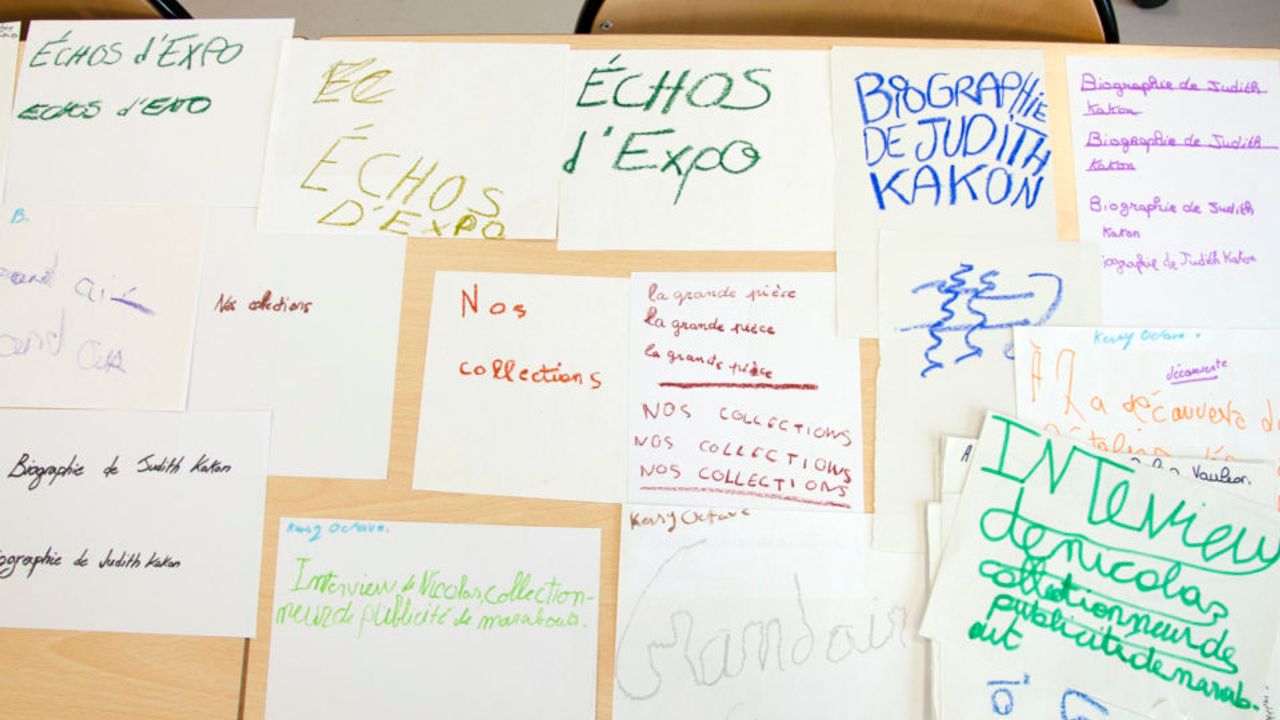 ÉCHOS d'EXPO
ECHOS d'EXPO
EC
ÉCHOS
D'EXPO
ÉCHOS
d'Expo
BiOGRAPHiE
DE JUDiTH
KAKON
Biographie de Judith
Kakon
Biographie de Judith
Kakon
Biographie de Judith
Kakon
iographie de Judith Kakon
B.
and
and
Nos collections
Nos
collections
la grande pièce
la grande pièce
la grande pièce
NOS COLLECTIONS
NOS COLLECTIONS
NOS COLLECTIONS
Kerry Octave.
découverte
À
La découverte d
Biographie de Judith Kakon
iographie de Judith Kakon
Kerry Octave.
Interview de Nicolas collection-
neur de publicité de marabouts.
Kerry Octave
Grand air
A
Vauleon.
INTerview
de nicolas
collectionneur de
publicité de marab.
out